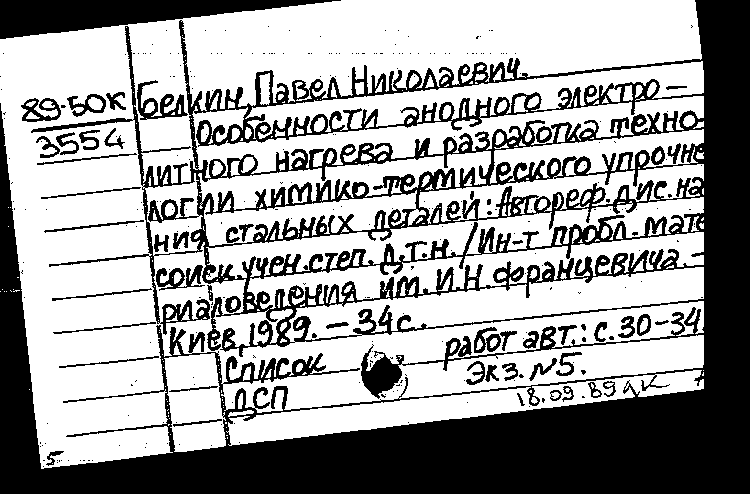 89-50К
3554
Белкин, Павел Николаевич.
Особенности анодного электро-
литного нагрева и разработка техно-
логии химико-термического упрочне
ния стальных деталей: Автореф. дис. на
соиск. учен. степ. д.т.н. / Ин-т пробл. мате
риаловедения им. И.Н. Францевича. -
Киев, 1989. - 34 с.
Список работ авт.: с. 30-34.
ДСП Экз. N5.
18.09.89
5